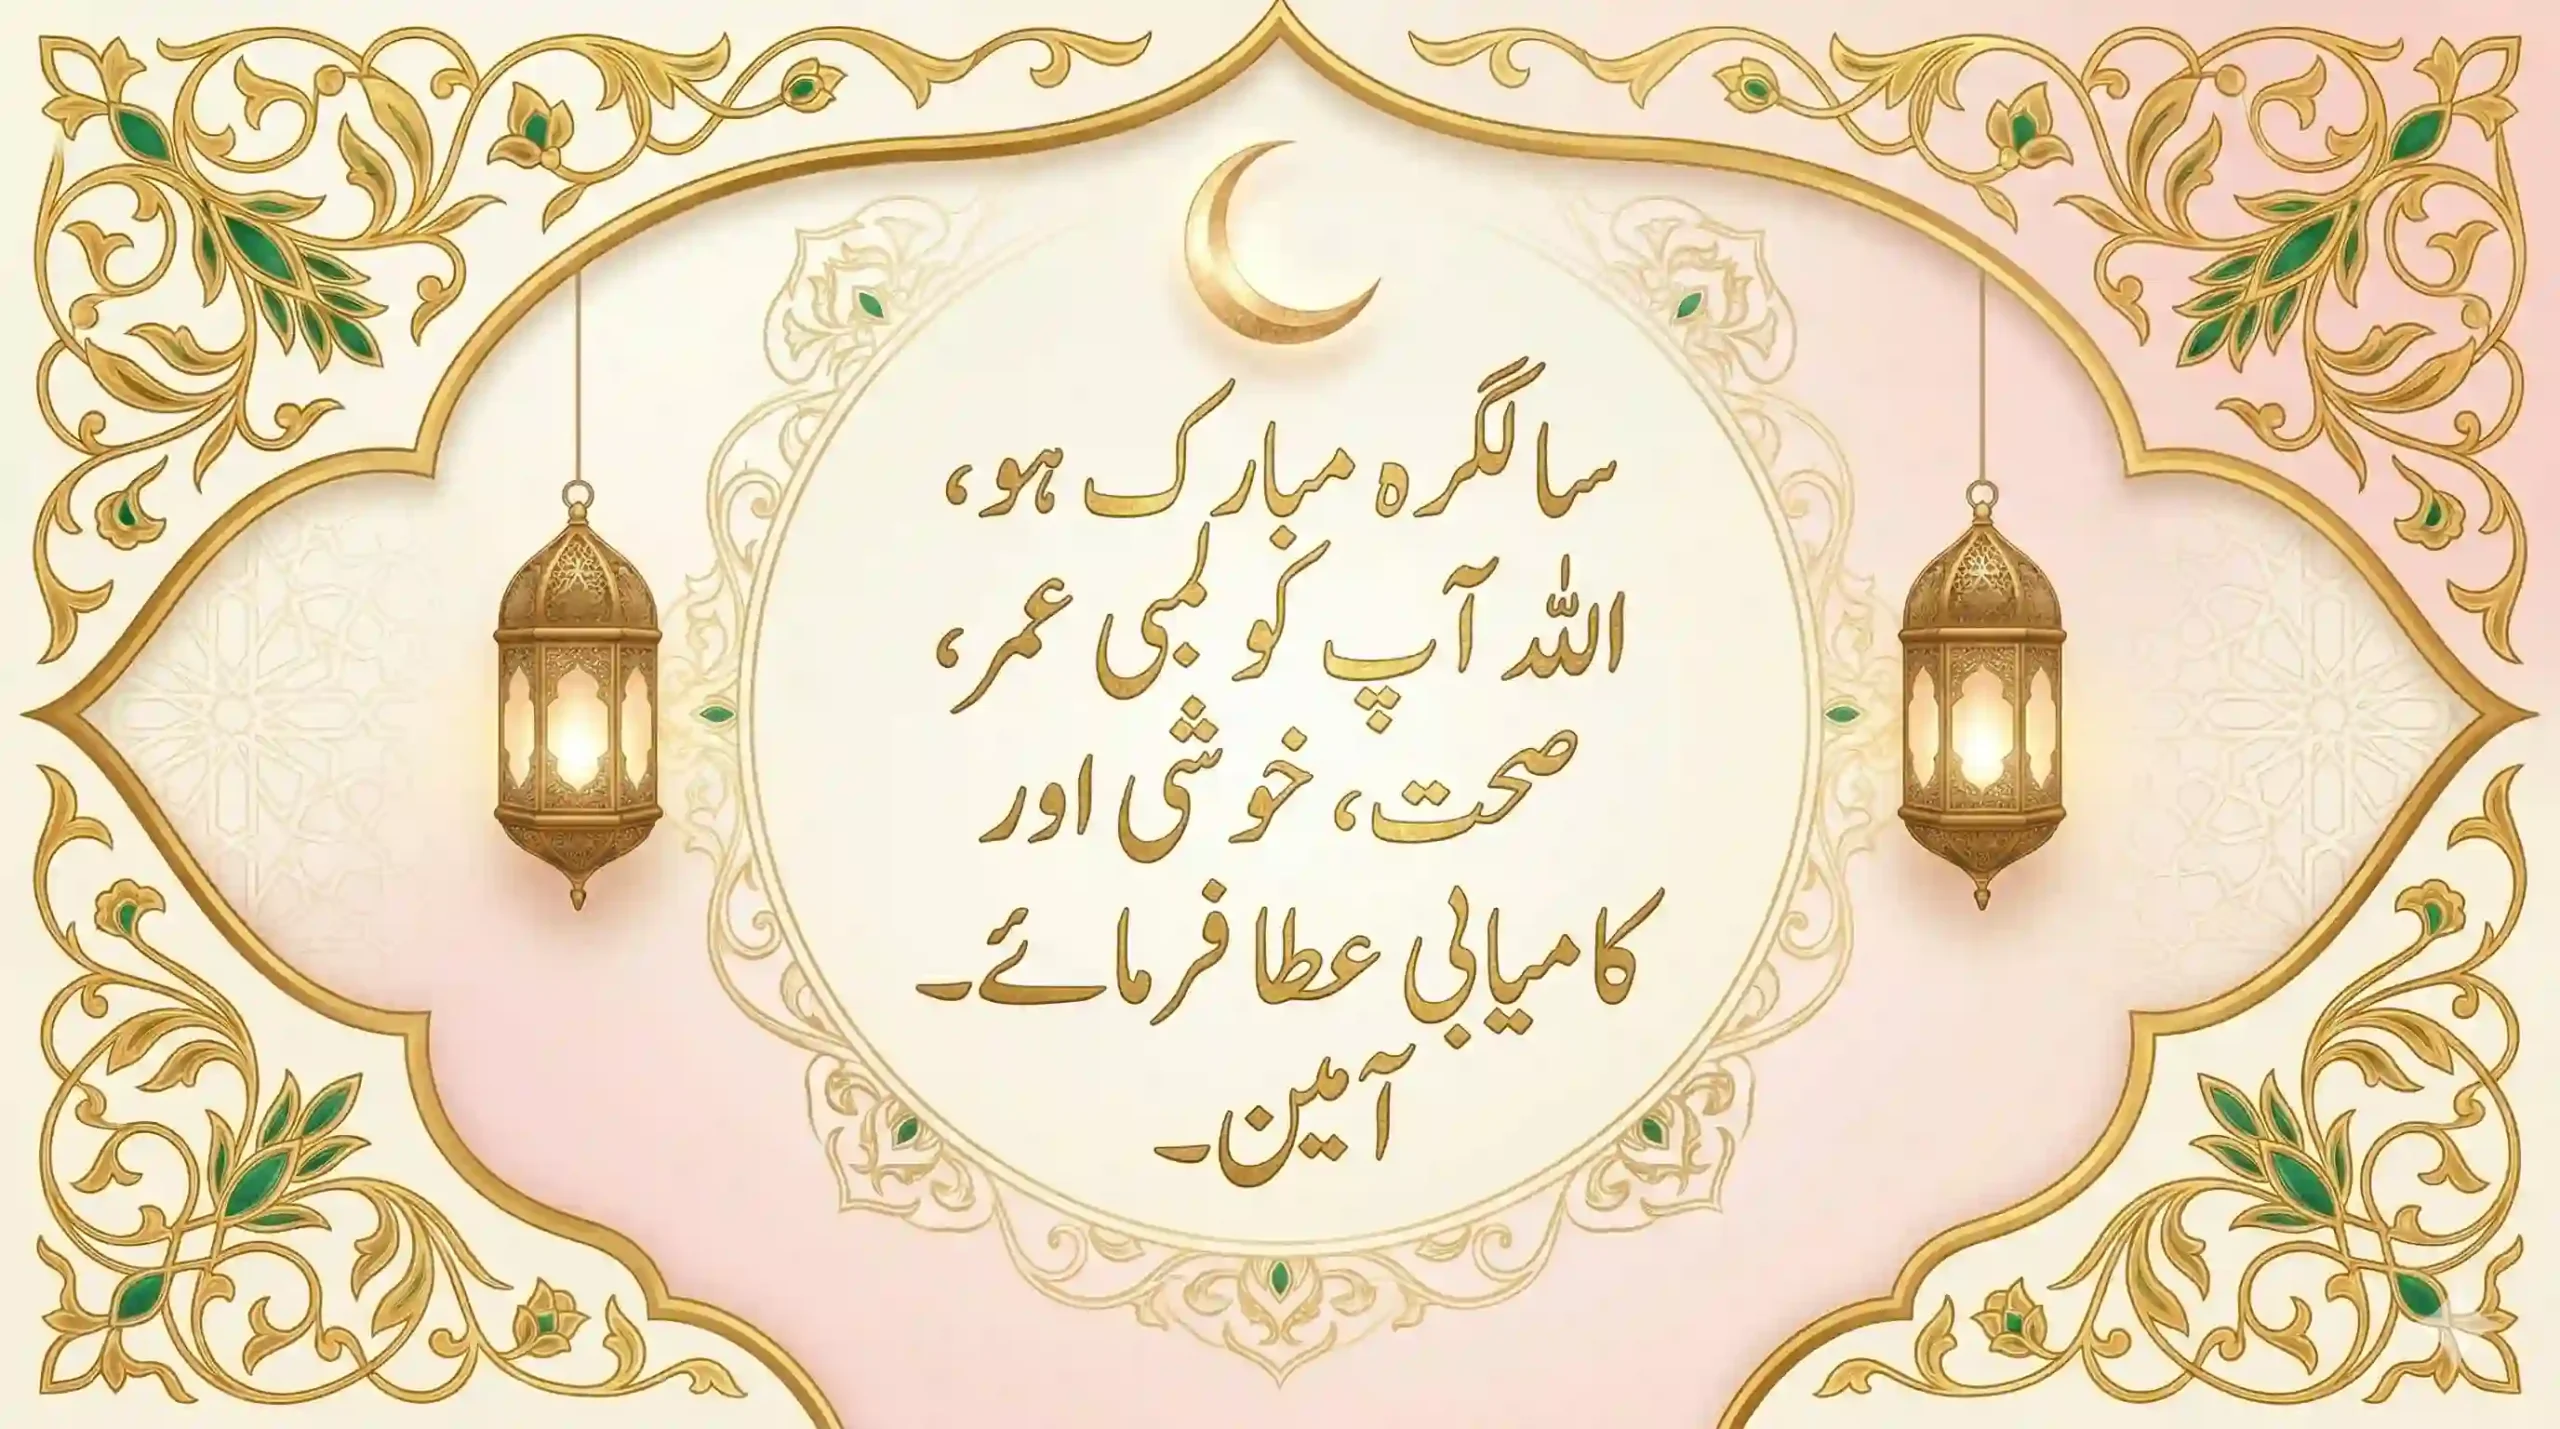 سالگرہ مبارک ہو،
اللہ آپ کو لمبی عمر،
صحت، خوشی اور
کامیابی عطا فرمائے۔
آمین۔